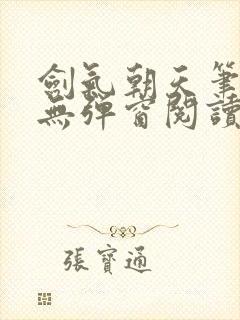 劍氣朝天筆
無彈窗閱讀
張寶通